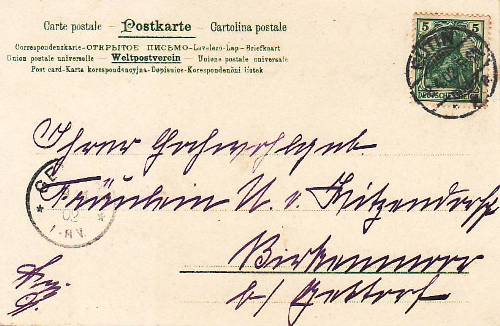 Carte postale - Postkarte - Cartolina postale
Correspondenzkarte-ОТКРЫТОЕ ПИСЬМО-Levelező-Lap - Briefkaart
Union postale universelle - Weltpostverein - Unione postale universale
Post card-Karta korespondencyjna-Dopisnice-Korespondenční lístek
5 5
DEUTSCHES REICH
EUTIN
Ihrer Hochwohlgeb.
Fräulein U. v. Witzendorff
Birkenmoor
b/ Gettorf
02
7-8V.